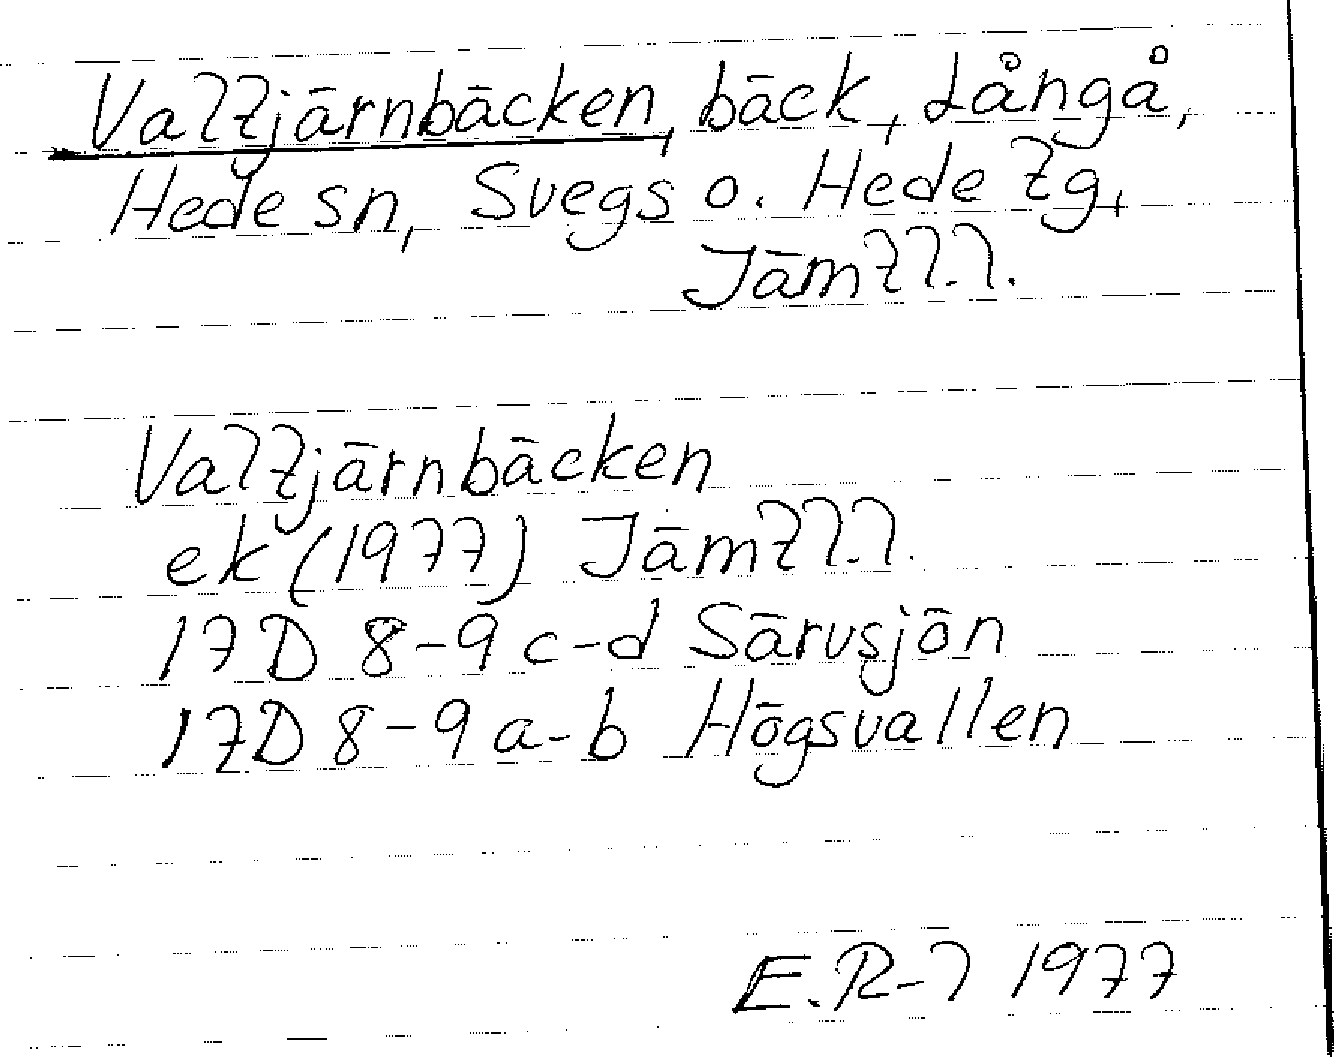 Valtjärnbäcken, bäck, Långå,
Hede sn, Svegs o. Hede tg,
Jämtl.l.
Valtjärnbäcken
ek (1977) Jämtl.l.
17D 8-9 c-d Särvsjön
17D 8-9 a-b Högsvallen
E.R-l 1977